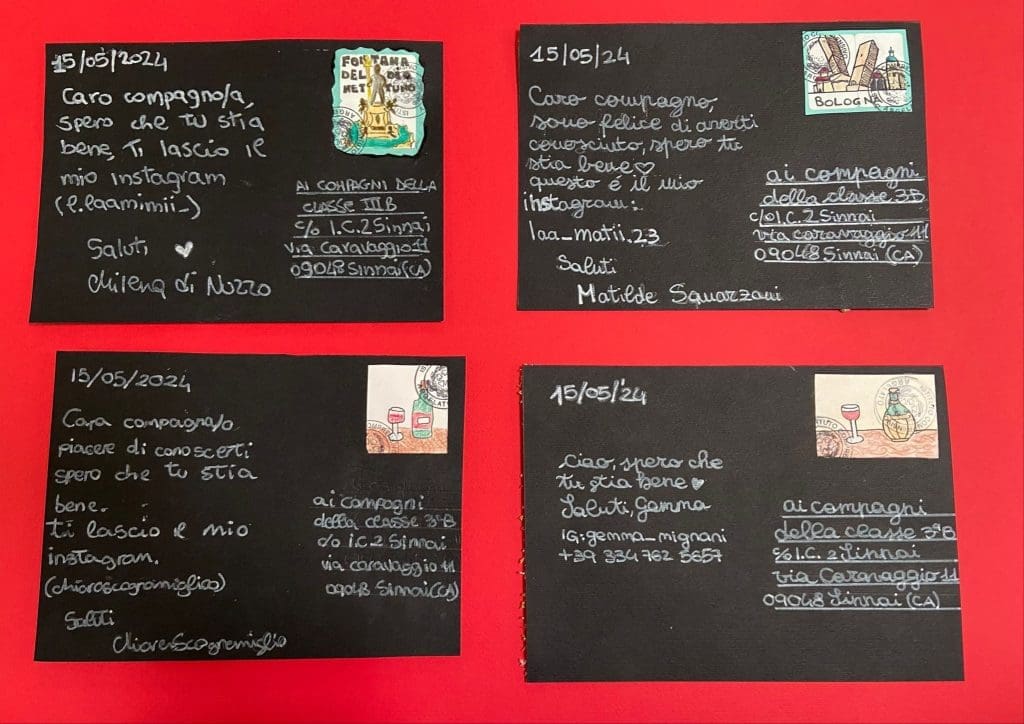 15/05/2024
Caro compagno/a,
spero che tu stia
bene, Ti lascio il
mio instagram
(l.laamimii_)
Saluti
Milena di Nuzzo
FONTANA
DEL DIO
NETTUNO
AI COMPAGNI DELLA
CLASSE III B
c/o I.C.2 Sinnai
via Caravaggio 11
09048 Sinnai (CA)
15/05/24
Caro compagno,
sono felice di averti
conosciuto, spero tu
stia bene♡
questo é il mio
instagram:
laa_matii.23
Saluti
Matilde Squarzani
BOLOGNA
ai compagni
della classe 3B
c/o I.C.2 Sinnai
via caravaggio 11
09048 Sinnai (CA)
15/05/2024
Cara compagna/o
piacere di conoscerti
spero che tu stia
bene.
ti lascio il mio
instagram.
(chiarascognamiglioo)
Saluti
Chiara Scognamiglio
ai compagni
della classe 3ªB
c/o I.C.2 Sinnai
via caravaggio 11
09048 Sinnai (CA)
15/05/24
Ciao, spero che
tu stia bene♥
Saluti, Gemma
IG: gemma_mignani
+39 334 762 5657
ai compagni
della classe 3ªB
c/o I.C. 2 Sinnai
via Caravaggio 11
09048 Sinnai (CA)